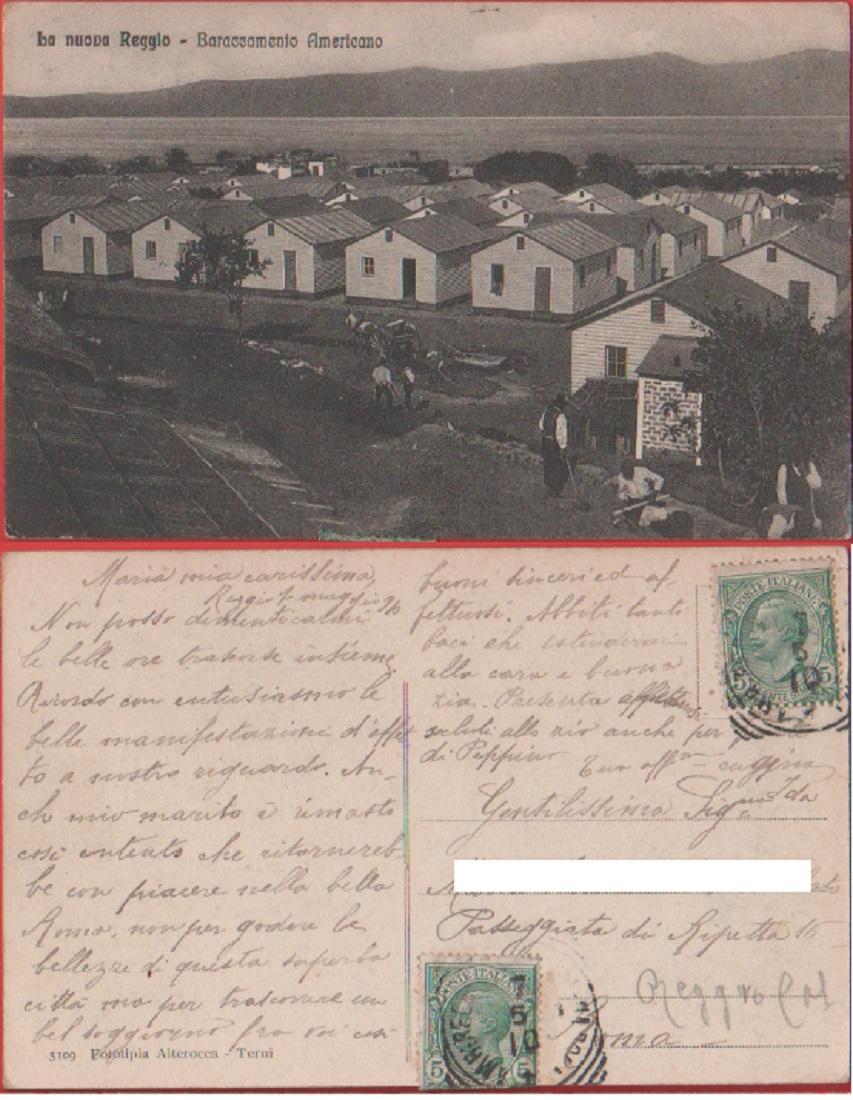 La nuova Reggio - Baraccamento Americano
Maria mia carissima,
Reggio 1 maggio
Non posso dimenticarmi
le belle ore trascorse insieme.
Ricordo con entusiasmo le
belle manifestazioni d'affet
to a nostro riguardo. An-
ch mio marito è rimasto
così contento che ritornereb-
be con piacere nella bella
Roma, non per godere le
bellezze di questa superba
città ma per trascorrere un
bel soggiorno fra voi così
buoni sinceri ed af-
fettuosi. Abbiti tanti
baci che estenderai
alla cara e buona
zia. Presenta affettuosi
saluti allo zio anche per
di Peppino
Tua affma cugina
Ida
Gentilissima Sigma
Passeggiata di Ripetta 16
Reggio Cal
Roma
3109 Fototipia Alterocca - Terni
POSTE ITALIANE
5
5
1
5
10
POSTE ITALIANE
5
5
5
10